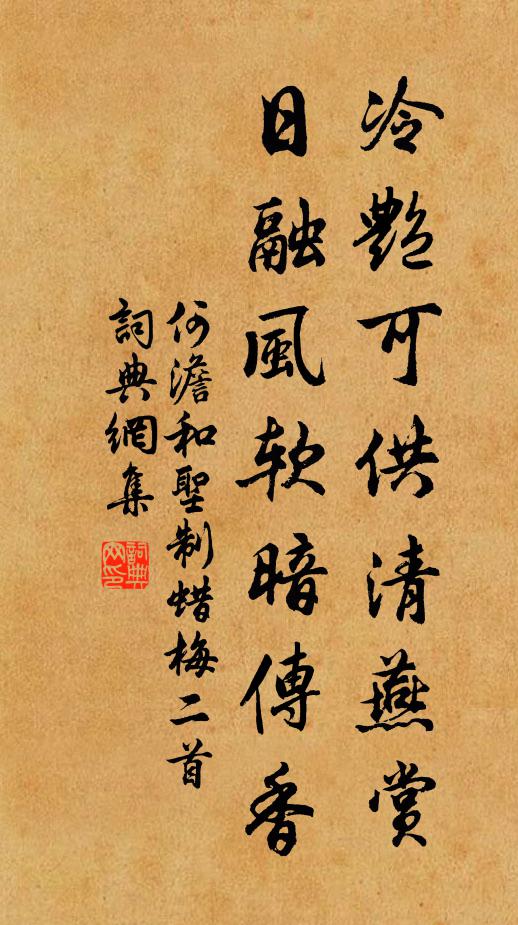 冷艷可供清燕賞
日融風软暗傳香
何澹和聖制蜡梅二首
詞典網集
詞典網印